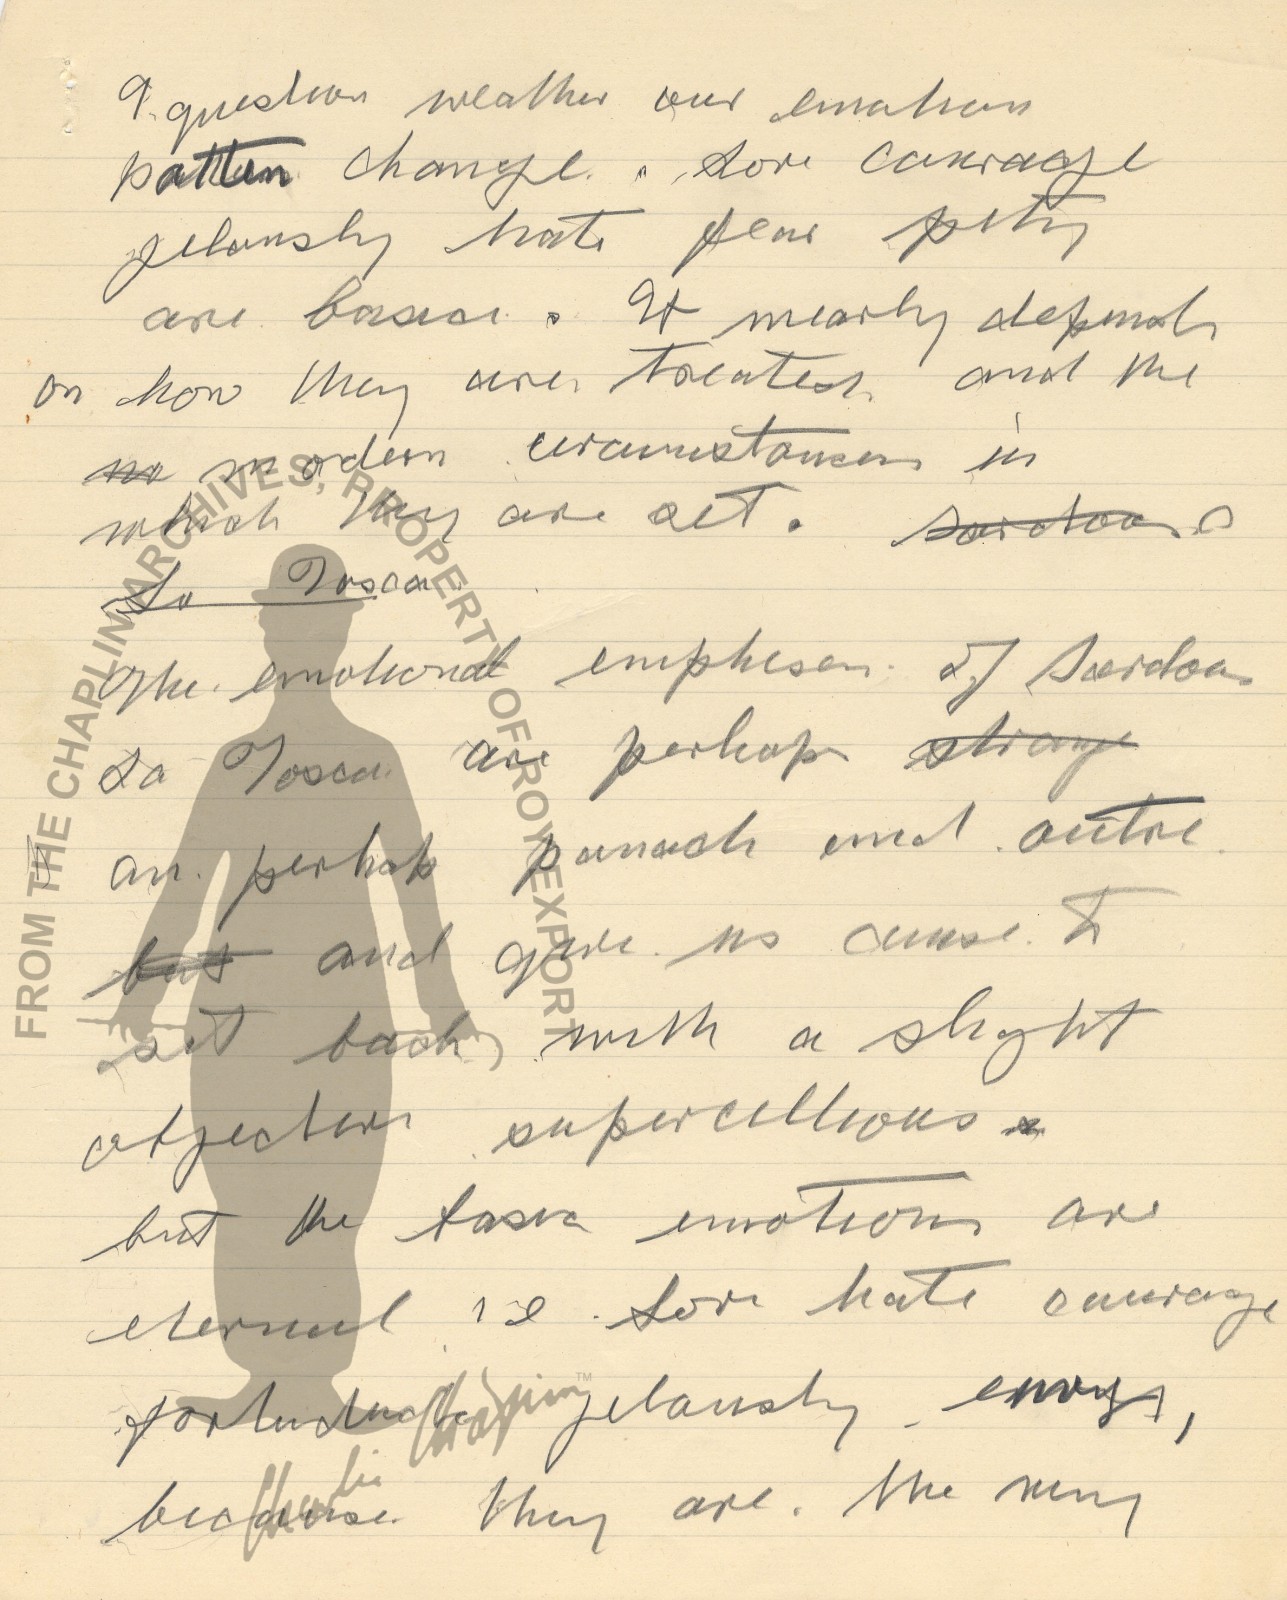 I question weather our emotion
pattern change. Love courage
jelously hate fear pity
are basic. It mearly depends
on how they are treated and the
modern circumstances in
which they are set. Sardou
La Tosca
The emotional emphesen of Sardou
La Tosca are perhaps strange
an perhap panach and outre
but and give us cause to
set back, with a slight
objective supercillious
but the basic emotions are
eternal i e Love hate courage
fortitude jelousy envy,
because they are. the very
FROM THE CHAPLIN ARCHIVES, PROPERTY OF ROY EXPORT
Charlie Chaplin™